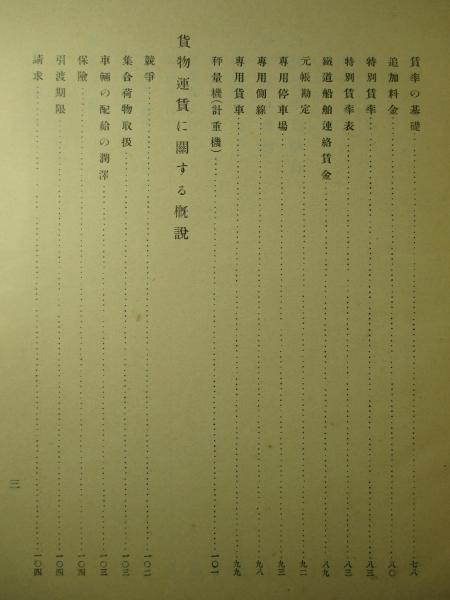 賃率の基礎……七八
追加料金……八〇
特別賃率……八三
特別賃率表……八三
鐵道船舶連絡賃金……八九
元帳勘定……九二
専用停車場……九三
専用側線……九八
専用貨車……九九
秤量機(計重機)……一〇一
貨物運賃に關する概說
競爭……一〇二
集合荷物取扱……一〇三
車輛の配給の潤澤……一〇三
保險……一〇四
引渡期限……一〇四
請求……一〇四
三